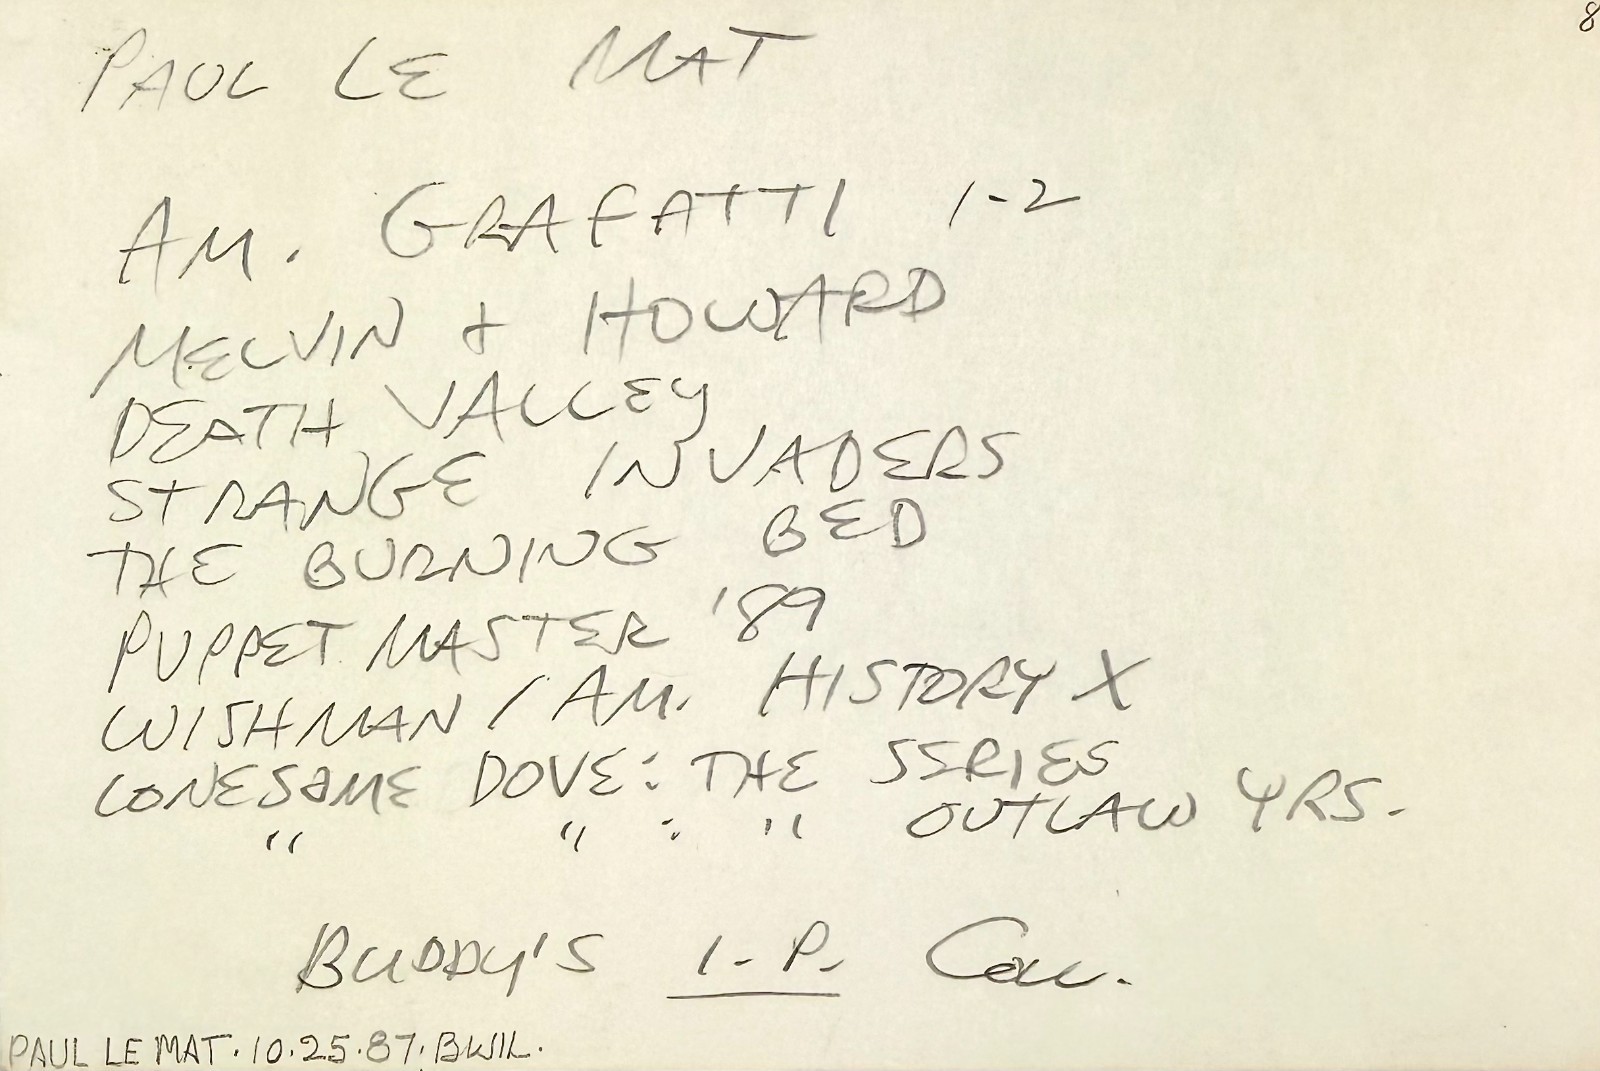 8
PAUL LE MAT
AM. GRAFATTI 1-2
MELVIN + HOWARD
DEATH VALLEY
STRANGE INVADERS
THE BURNING BED
PUPPET MASTER '89
WISHMAN / AM. HISTORY X
LONESOME DOVE: THE SERIES
" " : " OUTLAW YRS.
BUDDY'S I.P. Cou.
PAUL LE MAT. 10.25.87. BWIL.